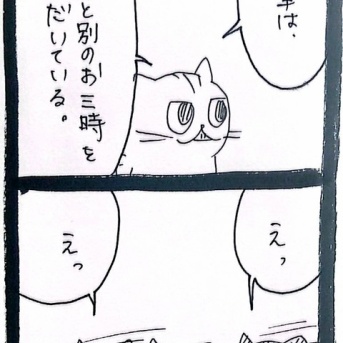 は、
と別のお三時を
だいている。
えっ
えっ